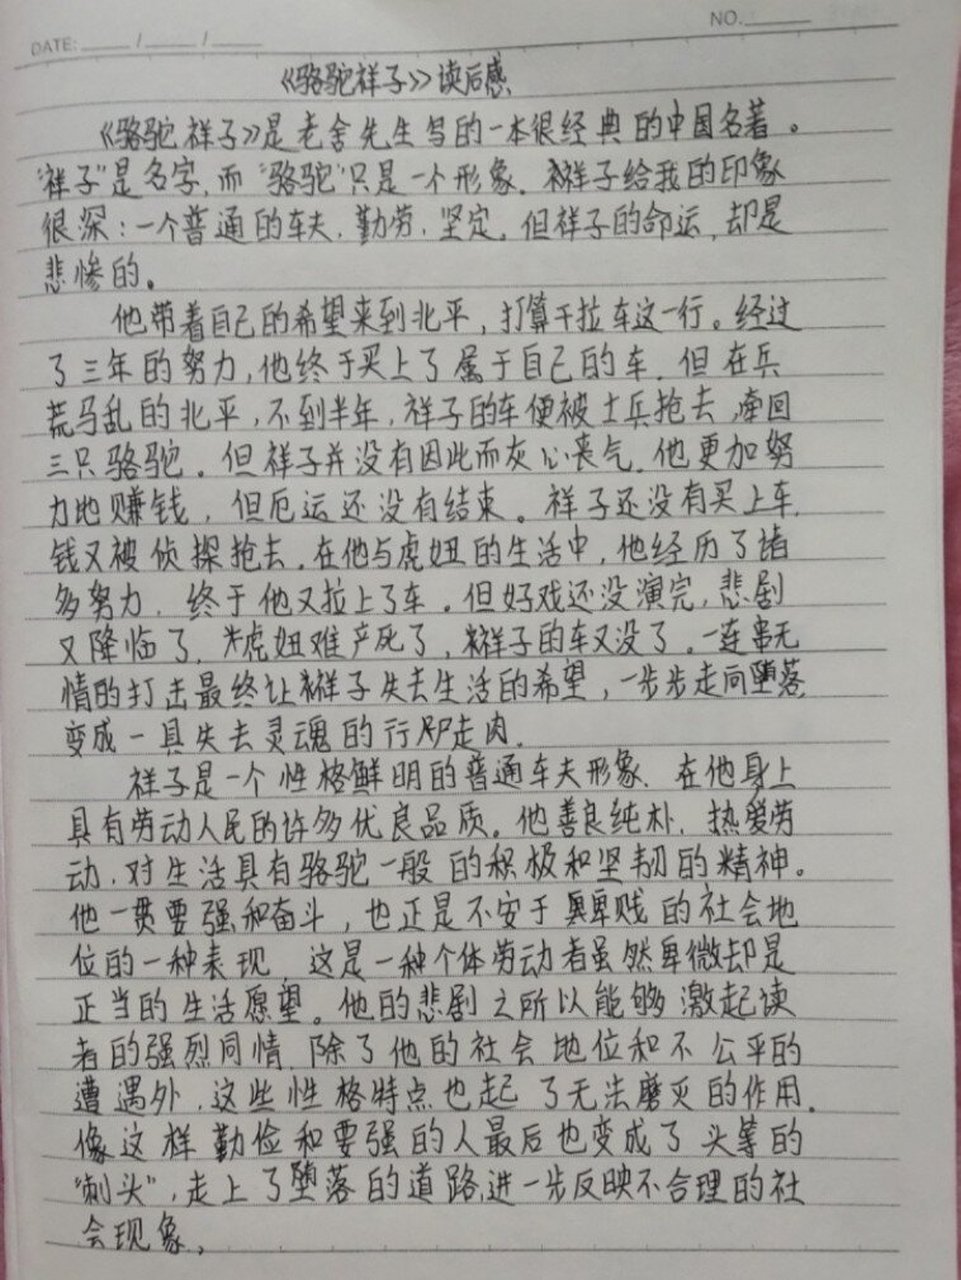 NO.
DATE: / /
《骆驼祥子》读后感
《骆驼祥子》是老舍先生写的一本很经典的中国名著。
"祥子"是名字，而"骆驼"只是一个形象。祥子给我的印象
很深：一个普通的车夫，勤劳，坚定。但祥子的命运，却是
悲惨的。
他带着自己的希望来到北平，打算干拉车这一行。经过
了三年的努力，他终于买上了属于自己的车。但在兵
荒马乱的北平，不到半年，祥子的车便被士兵抢去，牵回
三只骆驼。但祥子并没有因此而灰心丧气。他更加努
力地赚钱，但厄运还没有结束。祥子还没有买上车，
钱又被侦探抢去。在他与虎妞的生活中，他经历了诸
多努力，终于他又拉上了车。但好戏还没演完，悲剧
又降临了，虎妞难产死了，祥子的车又没了。一连串无
情的打击最终让祥子失去生活的希望，一步步走向堕落
变成一具失去灵魂的行尸走肉。
祥子是一个性格鲜明的普通车夫形象、在他身上
具有劳动人民的许多优良品质。他善良纯朴，热爱劳
动，对生活具有骆驼一般的积极和坚韧的精神。
他一贯要强和奋斗，也正是不安于卑贱的社会地
位的一种表现，这是一种个体劳动者虽然卑微却是
正当的生活愿望。他的悲剧之所以能够激起读
者的强烈同情，除了他的社会地位和不公平的
遭遇外，这些性格特点也起了无法磨灭的作用。
像这样勤俭和要强的人最后也变成了头等的
"刺头"，走上了堕落的道路，进一步反映不合理的社
会现象，